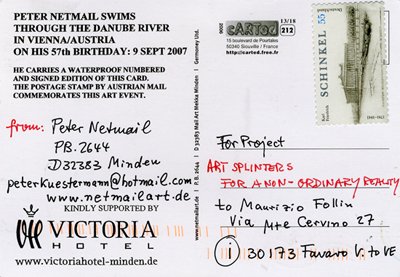 PETER NETMAIL SWIMS
THROUGH THE DANUBE RIVER
IN VIENNA/AUSTRIA
ON HIS 57th BIRTHDAY: 9 SEPT 2007
HE CARRIES A WATERPROOF NUMBERED
AND SIGNED EDITION OF THIS CARD.
THE POSTAGE STAMP BY AUSTRIAN MAIL
COMMEMORATES THIS ART EVENT.
from: Peter Netmail
PB. 2644
D 32383 Minden
peterkuestermann@hotmail.com
www.netmailart.de
KINDLY SUPPORTED BY
VICTORIA
HOTEL
www.victoriahotel-minden.de
www.netmailart.de | P.B. 2644 | D 32383 Mail Art Mekka Minden | Germoney Ltd.
CARTOZ
2006
13/18
212
15 boulevard de Pourtales
50340 Siouville / France
http://carted.free.fr
SCHINKEL 55
For Project
ART SPLINTERS
FOR A NON-ORDINARY REALITY
to Maurizio Follin
Via Mte Cervino 27
i 30173 Favaro V.to VE